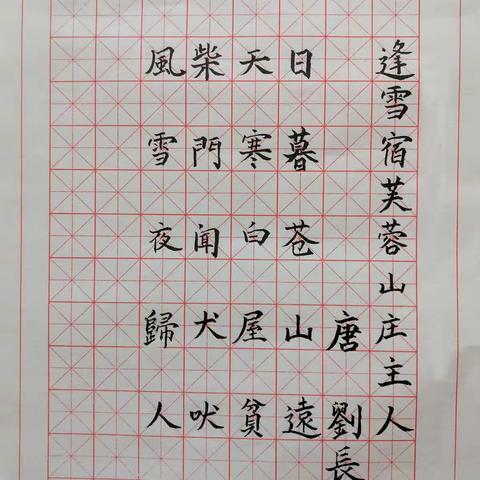 逢雪宿芙蓉山庄主人
唐
劉長
日暮苍山遠
天寒白屋貧
柴門闻犬吠
風雪夜歸人